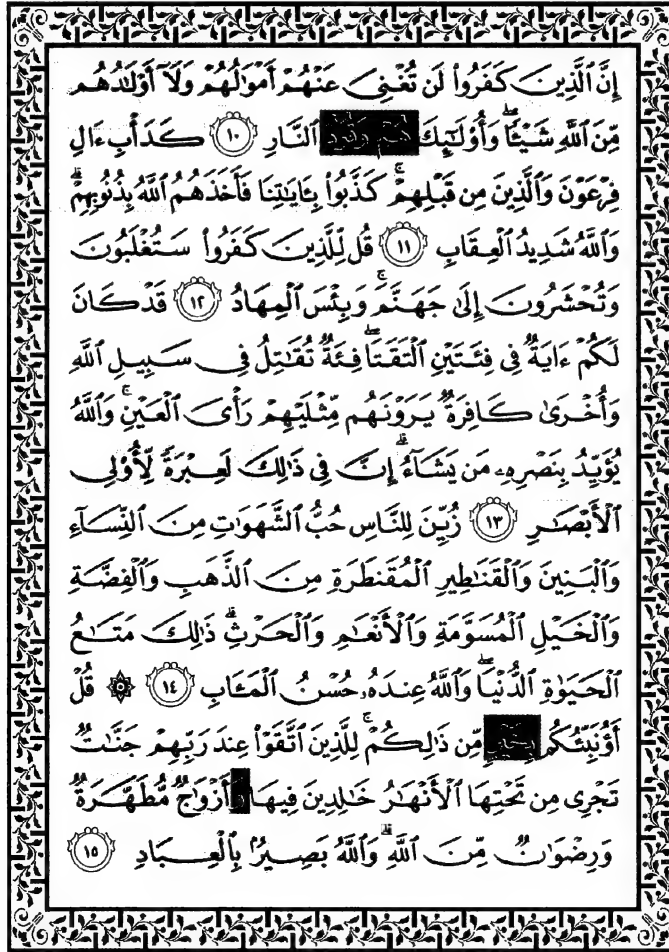 إِنَّ ٱلَّذِينَ كَفَرُواْ لَن تُغۡنِيَ عَنۡهُمۡ أَمۡوَٰلُهُمۡ وَلَآ أَوۡلَٰدُهُم
مِّنَ ٱللَّهِ شَيۡـٔٗاۖ وَأُوْلَٰٓئِكَ ٱلنَّارِ ١٠ كَدَأۡبِ ءَالِ
فِرۡعَوۡنَ وَٱلَّذِينَ مِن قَبۡلِهِمۡۚ كَذَّبُواْ بِـَٔايَٰتِنَا فَأَخَذَهُمُ ٱللَّهُ بِذُنُوبِهِمۡۗ
وَٱللَّهُ شَدِيدُ ٱلۡعِقَابِ ١١ قُل لِّلَّذِينَ كَفَرُواْ سَتُغۡلَبُونَ
وَتُحۡشَرُونَ إِلَىٰ جَهَنَّمَۚ وَبِئۡسَ ٱلۡمِهَادُ ١٢ قَدۡ كَانَ
لَكُمۡ ءَايَةٞ فِي فِئَتَيۡنِ ٱلۡتَقَتَاۖ فِئَةٞ تُقَٰتِلُ فِي سَبِيلِ ٱللَّهِ
وَأُخۡرَىٰ كَافِرَةٞ يَرَوۡنَهُم مِّثۡلَيۡهِمۡ رَأۡيَ ٱلۡعَيۡنِۚ وَٱللَّهُ
يُؤَيِّدُ بِنَصۡرِهِۦ مَن يَشَآءُۗ إِنَّ فِي ذَٰلِكَ لَعِبۡرَةٗ لِّأُوْلِي
ٱلۡأَبۡصَٰرِ ١٣ زُيِّنَ لِلنَّاسِ حُبُّ ٱلشَّهَوَٰتِ مِنَ ٱلنِّسَآءِ
وَٱلۡبَنِينَ وَٱلۡقَنَٰطِيرِ ٱلۡمُقَنطَرَةِ مِنَ ٱلذَّهَبِ وَٱلۡفِضَّةِ
وَٱلۡخَيۡلِ ٱلۡمُسَوَّمَةِ وَٱلۡأَنۡعَٰمِ وَٱلۡحَرۡثِۗ ذَٰلِكَ مَتَٰعُ
ٱلۡحَيَوٰةِ ٱلدُّنۡيَاۖ وَٱللَّهُ عِندَهُۥ حُسۡنُ ٱلۡمَـَٔابِ ١٤ ۞ قُلۡ
أَؤُنَبِّئُكُم مِّن ذَٰلِكُمۡۚ لِلَّذِينَ ٱتَّقَوۡاْ عِندَ رَبِّهِمۡ جَنَّٰتٞ
تَجۡرِي مِن تَحۡتِهَا ٱلۡأَنۡهَٰرُ خَٰلِدِينَ فِيهَا أَزۡوَٰجٞ مُّطَهَّرَةٞ
وَرِضۡوَٰنٞ مِّنَ ٱللَّهِۗ وَٱللَّهُ بَصِيرُۢ بِٱلۡعِبَادِ ١٥